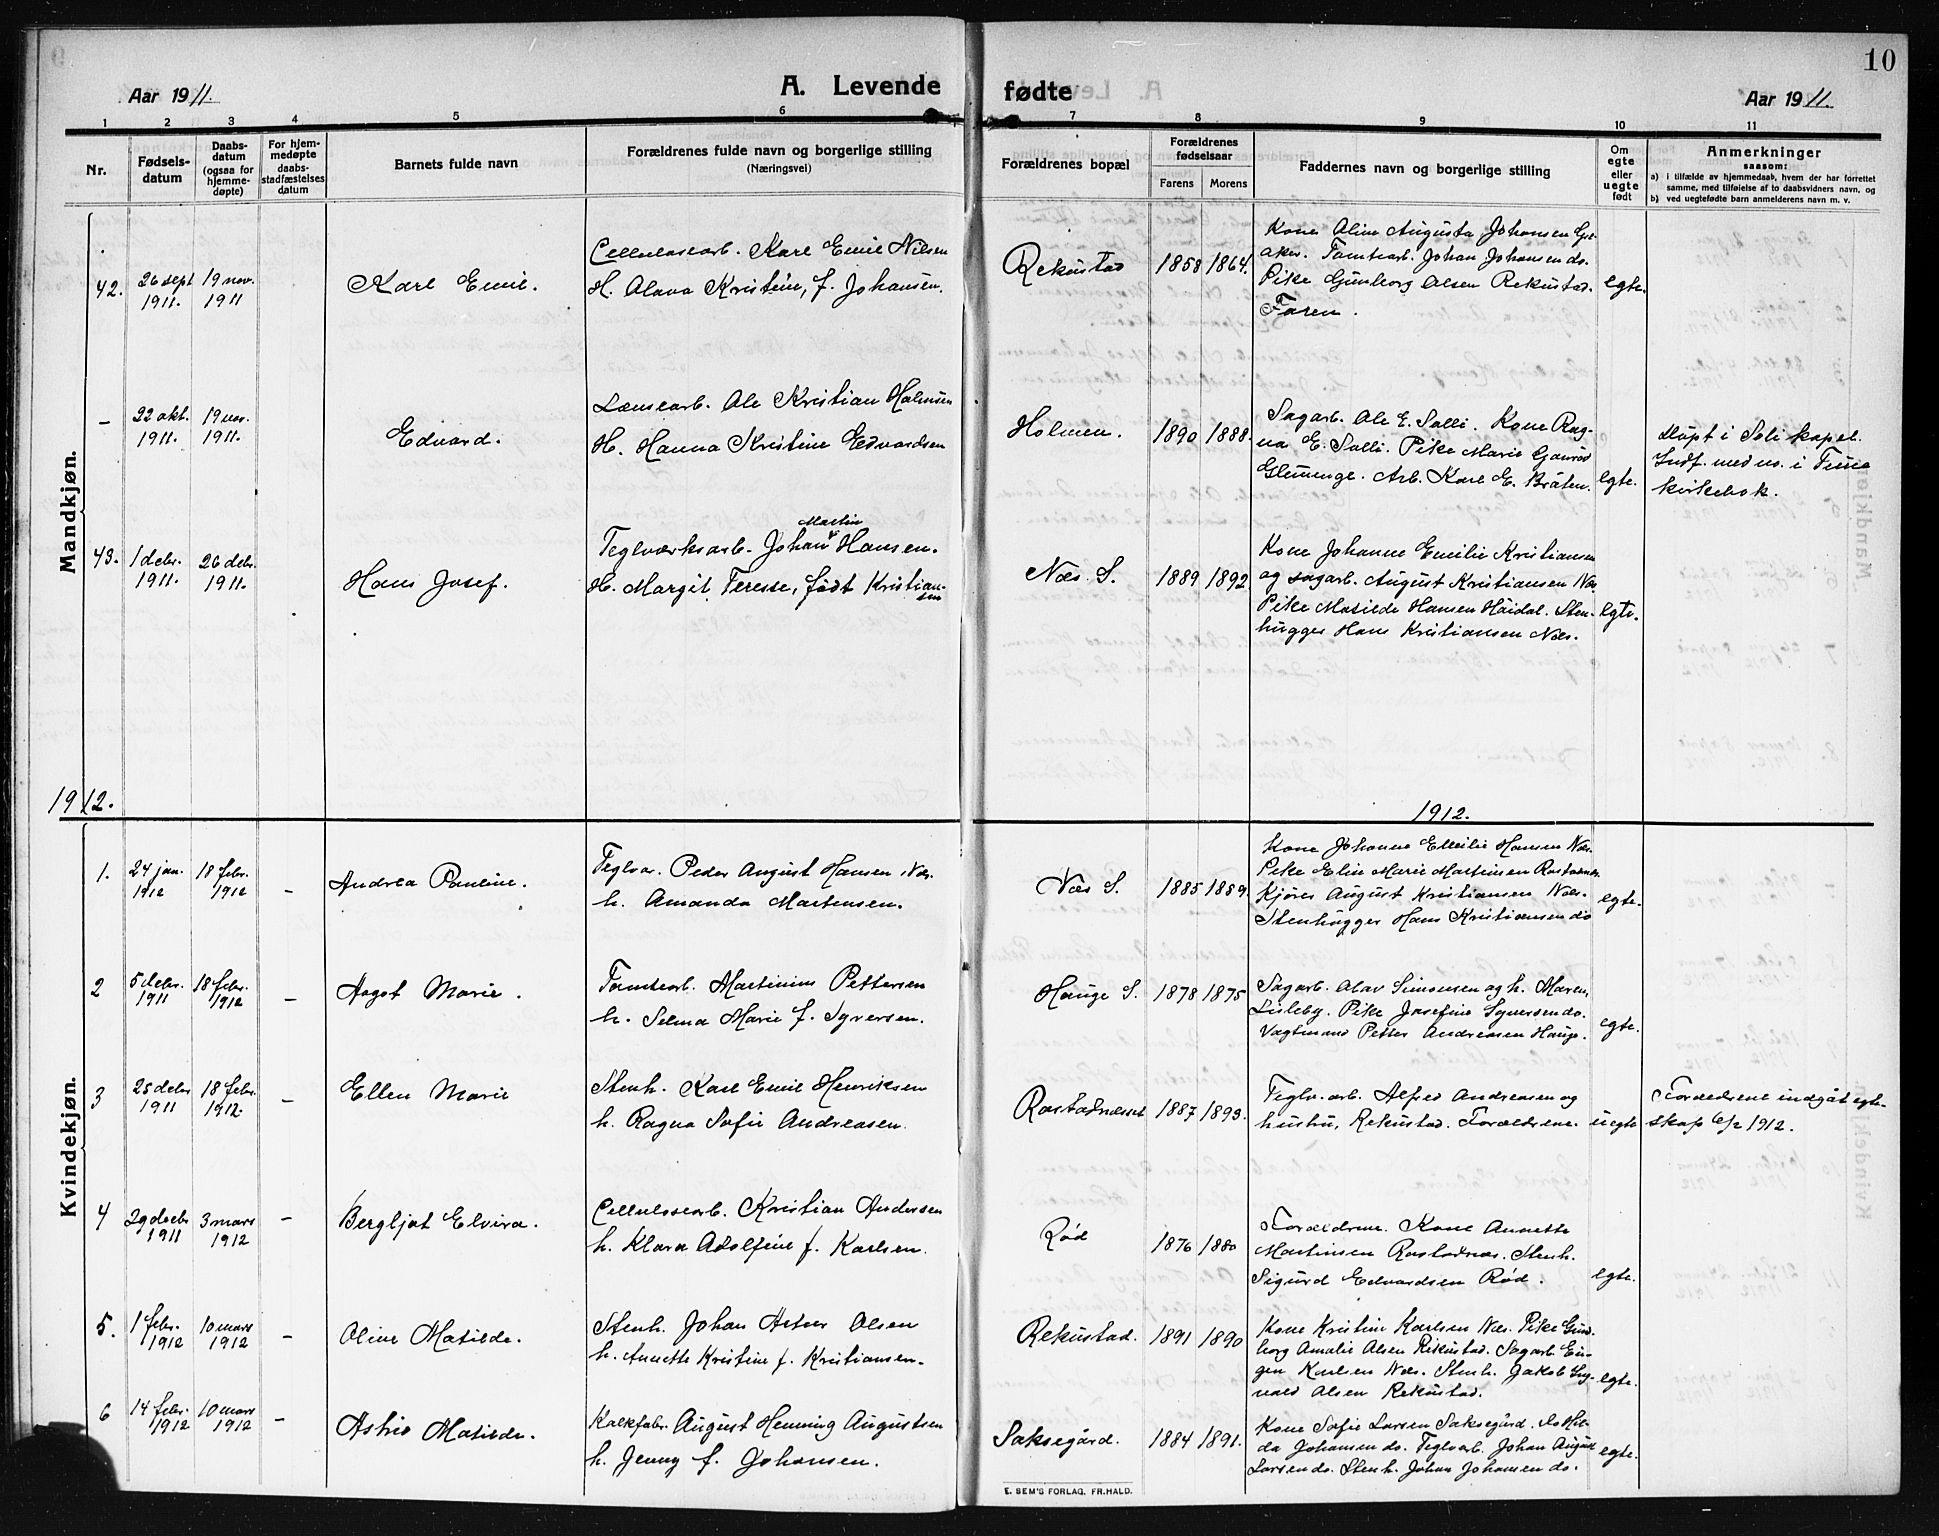 10
Aar 1911.
A. Levende
fødte
Aar 1911.
1 2 3 4 5 6 7 8 9 10 11
Nr.
Fødsels-
datum
Daabs-
datum
(ogsaa for
hjemme-
døpte)
For hjem-
medøpte
daabs-
stadfæstelses
datum
Barnets fulde navn
Forældrenes fulde navn og borgerlige stilling
(Næringsvei)
Forældrenes bopæl
Forældrenes
fødselsaar
Farens Morens
Faddernes navn og borgerlige stilling
Om
egte
eller
uegte
født
Anmerkninger
saasom:
a) i tilfælde av hjemmedaab, hvem der har forrettet
samme, med tilføielse af to daabsvidners navn, og
b) ved uegtefødte barn anmelderens navn m. v.
Mandkjøn.
42.
26 sept
1911.
19 nov.
1911
Karl Emil.
Cellulosearb. Karl Emil Nilsen
H. Alava Kristine, f. Johansen.
Rekustad
1858 1864.
Kone Aline Augusta Johansen Gre-
aker. Tomtearb. Johan Johansen do.
Pike Gunborg Olsen Rekustad.
Faren.
egte.
-
22 okt.
1911.
19 nov.
1911.
Edvard.
Lensearb. Ole Kristian Holmsen
H. Hanna Kristine Edvardsen
Holmen.
1890 1888.
Sagarb. Ole E. Solli. Kone Rag-
na E. Solli. Pike Marie Gaarød
Glemenge. Arb. Karl E. Bråten.
egte.
Døpt i Soli kapel.
Indf. med no. i Tune
kirkebok.
43.
1 debr.
1911.
26 debr.
1911.
Hans Josef.
Martin
Teglværksarb. Johan Hansen.
H. Margit Teresse, født Kristian-
sen
Næs. S.
1889 1892.
Kone Johanne Emilie Kristiansen
og sagarb. August Kristiansen Næs
Pike Matilde Hansen Høidal. Sten-
hugger Hans Kristiansen Næs.
egte.
1912.
1912.
Kvindekjøn.
1.
24 jan.
1912
18 febr.
1912
-
Andrea Pauline.
Teglvar. Peder August Hansen Næs.
h. Amanda Martensen.
Næs S.
1885 1889.
Kone Johanne Emilie Hansen Næs.
Pike Elin Marie Martinsen Rostadnes
Kjører August Kristiansen Næs.
Stenhugger Hans Kristiansen do
egte.
2
5 debr.
1911
18 febr.
1912
-
Aagot Marie.
Tomtearb. Martinius Pettersen
h. Selma Marie f. Syversen.
Hauge S.
1878 1875
Sagarb. Olav Simonsen og h. Maren,
Lisleby. Pike Josefine Syversen do.
Vagtmand Petter Andreasen Hauge.
egte.
3
25 debr
1911
18 febr.
1912.
-
Ellen Marie
Stenh. Karl Emil Henriksen
h. Ragna Sofie Andreasen.
Rostadnesset
1887 1893.
Teglv.arb. Alfred Andreasen og
hustru, Rekustad. Foreldrene.
uegte
Forældrene indgåt egte-
skap 6/2 1912.
4
29 debr
1911
3 mars
1912
-
Bergljot Elvira.
Cellulosearb. Kristian Andersen
h. Klara Adolfine f. Karlsen.
Rød
1876 1880
Forældrene. Kone Annette
Martinsen Rostadnæs. Stenh.
Sigurd Edvardsen Rød.
egte.
5.
1 febr.
1912
10 mars
1912
-
Oline Matilde.
Stenh. Johan Olsen
h. Annette Kristine f. Kristiansen.
Rekustad.
1891 1890
Kone Kristine Karlsen Næs. Pike Gun-
borg Amalie Olsen Rekustad. Sagarb. Eu-
gen Karlsen Næs. Stenh. Jakob Ing-
vald Olsen Rekustad.
egte.
6
14 febr.
1912
10 mars
1912
-
Astrid Matilde.
Kalkfabr. August Henning Augustsen
h. Jenny f. Johansen.
Saksegård.
1884 1891.
Kone Sofie Larsen Saksegård. do Hil-
da Johansen do. Teglvarb. Johan August
Larsen do. Stenh. Johan Johansen do.
egte.
E. SEM'S FORLAG, FR.HALD.